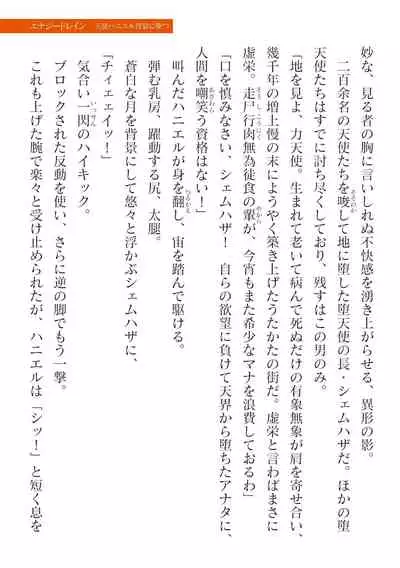 エナジードレイン 天使ハニエル淫獄に堕つ
妙な、見る者の胸に言いしれぬ不快感を湧き上がらせる、異形の影。
二百余名の天使たちを唆して地に堕した堕天使の長・シェムハザだ。ほかの堕
天使たちはすでに討ち尽くしており、残すはこの男のみ。
「地を見よ、力天使。生まれて老いて病んで死ぬだけの有象無象が肩を寄せ合い、
幾千年の増上慢の末にようやく築き上げたうたかたの街だ。虚栄と言わばまさに
虚栄。走尸行肉無為徒食の輩が、今宵もまた希少なマナを浪費しておるわ」
「口を慎みなさい、シェムハザ！　自らの欲望に負けて天界から堕ちたアナタに、
人間を嘲笑う資格はない！」
叫んだハニエルが身を翻し、宙を踏んで駆ける。
弾む乳房、躍動する尻、太腿。
蒼白な月を背景にして悠々と浮かぶシェムハザに、
「チィェェイッ！」
気合い一閃のハイキック。
ブロックされた反動を使い、さらに逆の脚でもう一撃。
これも上げた腕で楽々と受け止められたが、ハニエルは「シッ！」と短く息を